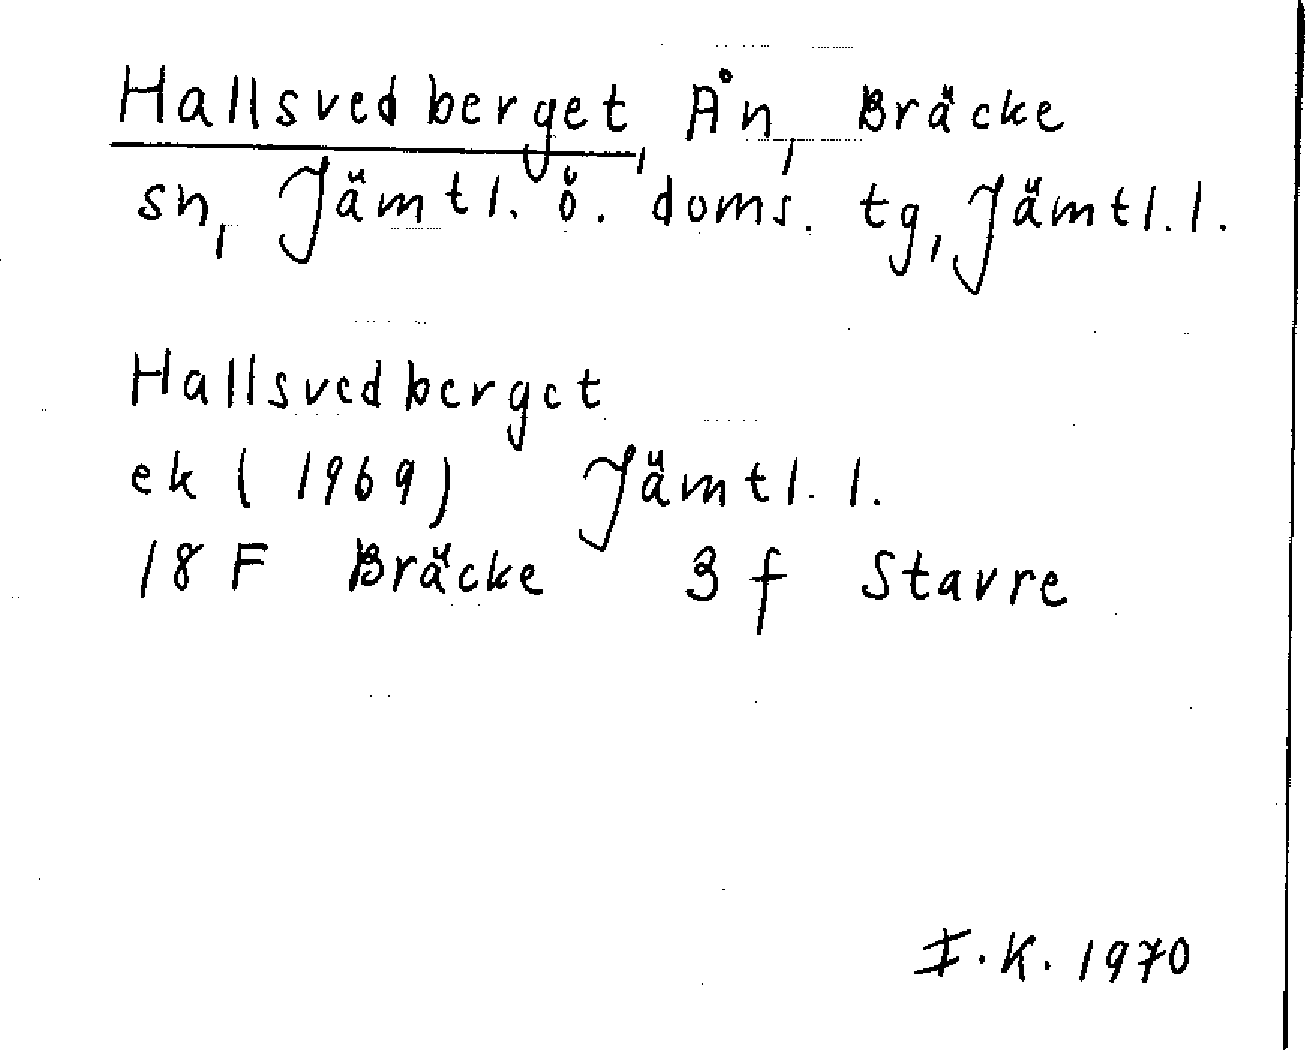 Hallsvedberget, Ån, Bräcke
sn, Jämtl. ö. doms. tg, Jämtl. l.
Hallsvedberget
ek (1969) Jämtl. l.
18 F Bräcke 3 f Stavre
I. K. 1970